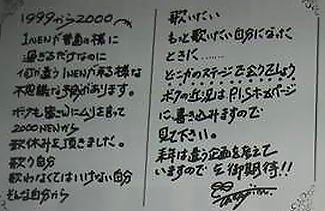 1999から2000へ
1NENが普通の様に
過ぎるだけなのに
何か違う1NENが来る様な
不思議な予感があります。
ボクも 無理を言って
2000NENから
お休みを頂きました。
歌う自分
歌わなくてはいけない自分
そんな自分から
歌いたい
もっと歌いたい自分になった
ときに……
どこかのステージで会うでしょう
ボクの近況はP.I.S.ホームページ
に書き込みますので
見て下さい。
来年は違う企画を考えて
いますので ご期待!!